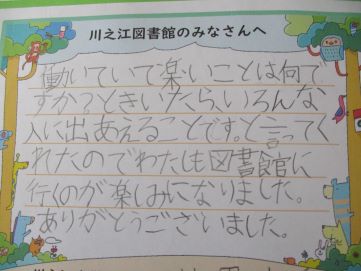 川之江図書館のみなさんへ
働いていて楽いことは何で
すか？ときいたら、いろんな
人に出あえることです。と言ってく
れたのでわたしも図書館に
行くのが楽しみになりました。
ありがとうございました。